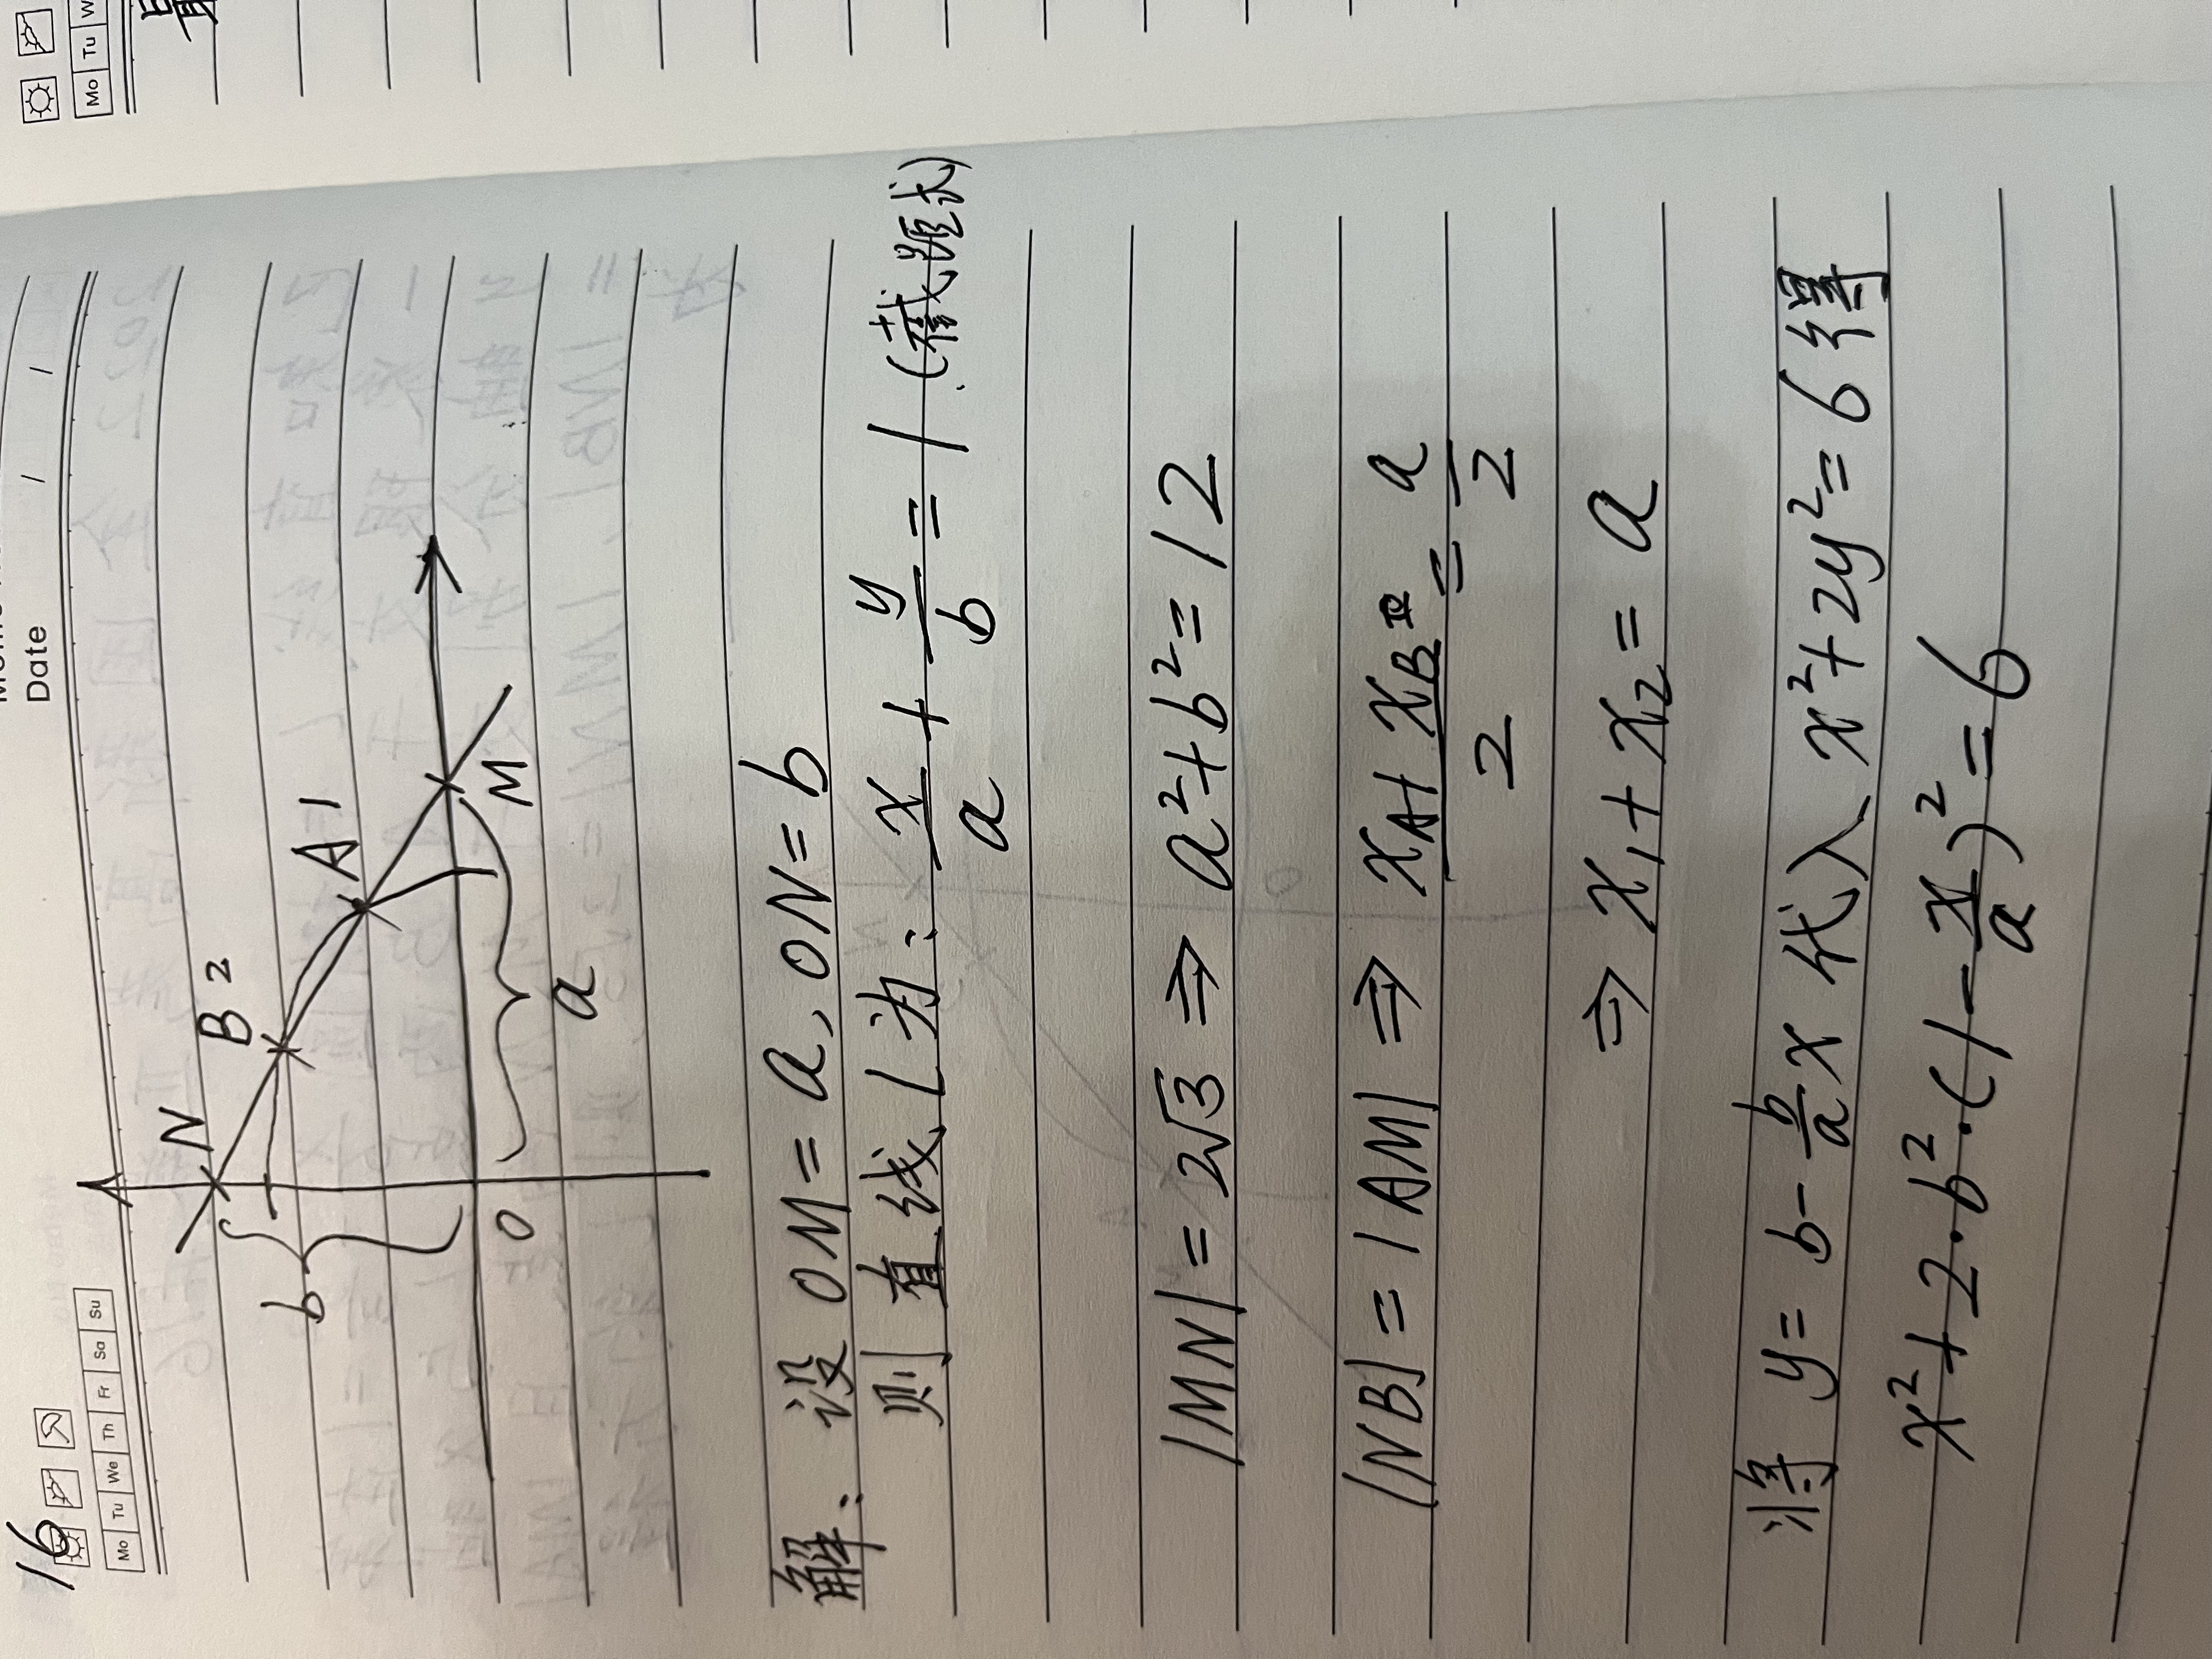 16
Mo Tu We Th Fr Sa Su
Date / /
N
B 2
A 1
M
b
O
a
解: 设 OM = a, ON = b
则 直线 l 为: x/a + y/b = 1 (截距式)
|MN| = 2√3 ⇒ a² + b² = 12
|NB| = |AM| ⇒ (x_A + x_B)/2 = a/2
⇒ x₁ + x₂ = a
将 y = b - b/a x 代入 x² + 2y² = 6 得
x² + 2·b²·(1 - x/a)² = 6
Mo Tu